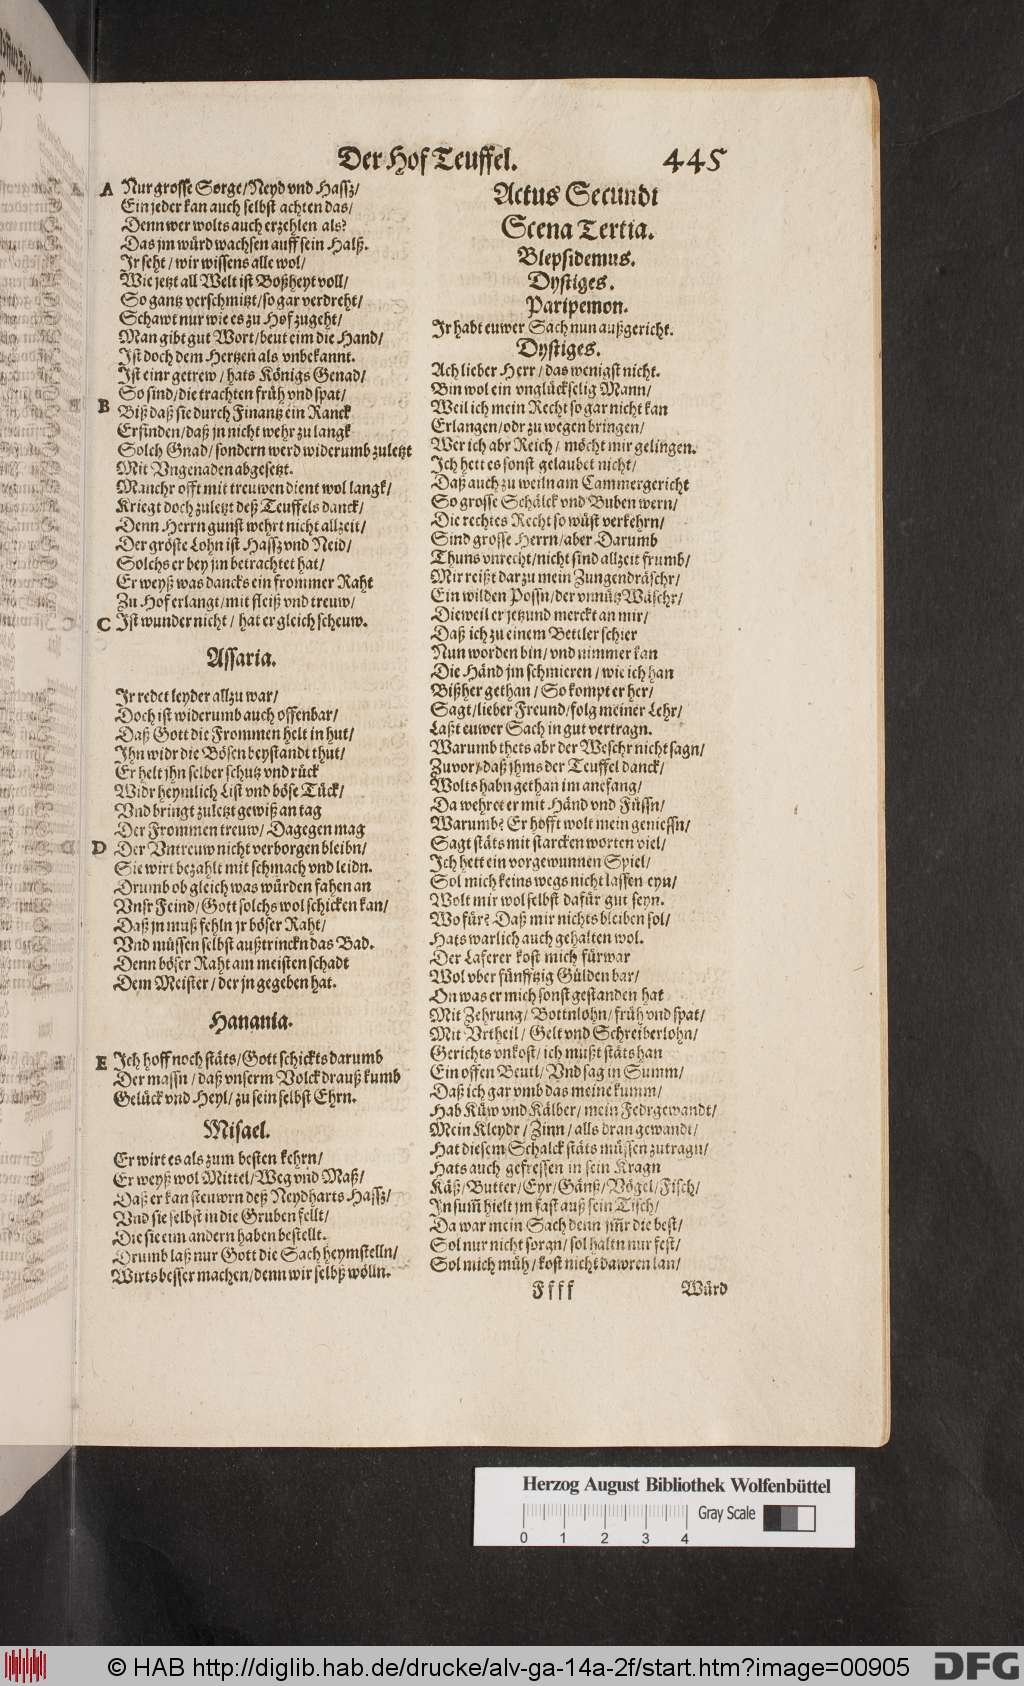 Der Hof Teuffel. 445
A Nur grosse Sorge/Neyd vnd Hassz/
Ein jeder kan auch selbst achten das/
Denn wer wolts auch erzehlen als?
Das jm würd wachsen auff sein Halß.
Jr seht/ wir wissens alle wol/
Wie jetzt all Welt ist Boßheyt voll/
So gantz verschmitzt/so gar verdreht/
Schawt nur wie es zu Hof zugeht/
Man gibt gut Wort/beut eim die Hand/
Jst doch dem Hertzen als vnbekannt.
Jst einr getrew/ hats Königs Genad/
So sind/die trachten früh vnd spat/
B Biß daß sie durch Finantz ein Ranck
Erfinden/daß jn nicht wehr zu langk
Solch Gnad/ sondern werd widerumb zuletzt
Mit Vngenaden abgesetzt.
Manchr offt mit treuwen dient wol langk/
Kriegt doch zuletzt deß Teuffels danck/
Denn Herrn gunst wehrt nicht allzeit/
Der gröste Lohn ist Hassz vnd Neid/
Solchs er bey jm betrachtet hat/
Er weyß was dancks ein frommer Raht
Zu Hof erlangt/mit fleiß vnd treuw/
C Jst wunder nicht/ hat er gleich scheuw.
Assaria.
Jr redet leyder allzu war/
Doch ist widerumb auch offenbar/
Daß Gott die Frommen helt in hut/
Jhn widr die Bösen beystandt thut/
Er helt jhn selber schutz vnd rück
Widr heymlich List vnd böse Tück/
Vnd bringt zuletzt gewiß an tag
Der Frommen treuw/ Dagegen mag
D Der Vntreuw nicht verborgen bleibn/
Sie wirt bezahlt mit schmach vnd leidn.
Drumb ob gleich was würden fahen an
Vnsr Feind/ Gott solchs wol schicken kan/
Daß jn muß fehln jr böser Raht/
Vnd müssen selbst außtrinckn das Bad.
Denn böser Raht am meisten schadt
Dem Meister/ der jn gegeben hat.
Hanania.
E Jch hoff noch stäts/Gott schickts darumb
Der massn/ daß vnserm Volck drauß kumb
Gelück vnd Heyl/ zu sein selbst Ehrn.
Misael.
Er wirt es als zum besten kehrn/
Er weyß wol Mittel/Weg vnd Maß/
Daß er kan steuwrn deß Neydharts Hassz/
Vnd sie selbst in die Gruben fellt/
Die sie eim andern haben bestellt.
Drumb laß nur Gott die Sach heymstelln/
Wirts besser machen/denn wir selbß wölln.
Actus Secundi
Scena Tertia.
Blepsidemus.
Dystiges.
Paripemon.
Jr habt euwer Sach nun außgericht.
Dystiges.
Ach lieber Herr/ das wenigst nicht.
Bin wol ein vnglückselig Mann/
Weil ich mein Recht so gar nicht kan
Erlangen/odr zu wegen bringen/
Wer ich abr Reich/ möcht mir gelingen.
Jch hett es sonst gelaubet nicht/
Daß auch zu weiln am Cammergericht
So grosse Schälck vnd Buben wern/
Die rechtes Recht so wüst verkehrn/
Sind grosse Herrn/aber Darumb
Thuns vnrecht/nicht sind allzeit frumb/
Mir reißt darzu mein Zungendräschr/
Ein wilden Possn/der vnnütz Wäschr/
Dieweil er jetzund merckt an mir/
Daß ich zu einem Bettler schier
Nun worden bin/vnd nimmer kan
Die Händ jm schmieren/ wie ich han
Bißher gethan/ So kompt er her/
Sagt/lieber Freund/folg meiner Lehr/
Laßt euwer Sach in gut vertragn.
Warumb thets abr der Weschr nicht sagn/
Zuvor/daß jhms der Teuffel danck/
Wolts habn gethan im anefang/
Da wehret er mit Händ vnd Füssn/
Warumb? Er hofft wolt mein geniessn/
Sagt stäts mit starcken worten viel/
Jch hett ein vorgewunnen Spiel/
Sol mich keins wegs nicht lassen eyn/
Wolt mir wol selbst dafür gut seyn.
Wofür? Daß mir nichts bleiben sol/
Hats warlich auch gehalten wol.
Der Laferer kost mich fürwar
Wol vber fünfftzig Gülden bar/
On was er mich sonst gestanden hat
Mit Zehrung/ Bottnlohn/ früh vnd spat/
Mit Vrtheil/ Gelt vnd Schreiberlohn/
Gerichts vnkost/ ich mußt stäts han
Ein offen Beutl/ Vnd sag in Summ/
Daß ich gar vmb das meine kumm/
Hab Küw vnd Kälber/ mein Fedrgewandt/
Mein Kleydr/ Zinn/ alls dran gewandt/
Hat diesem Schalck stäts müssen zutragn/
Hats auch gefressen in sein Kragn
Käß/Butter/Eyr/Gänß/Vögel/Fisch/
Jn sum̃ hielt jm fast auß sein Tisch/
Da war mein Sach denn jmr die best/
Sol nur nicht sorgn/ sol haltn nur fest/
Sol mich müh/ kost nicht dawren lan/
Ffff Würd
Herzog August Bibliothek Wolfenbüttel
0 1 2 3 4 Gray Scale
© HAB http://diglib.hab.de/drucke/alv-ga-14a-2f/start.htm?image=00905 DFG